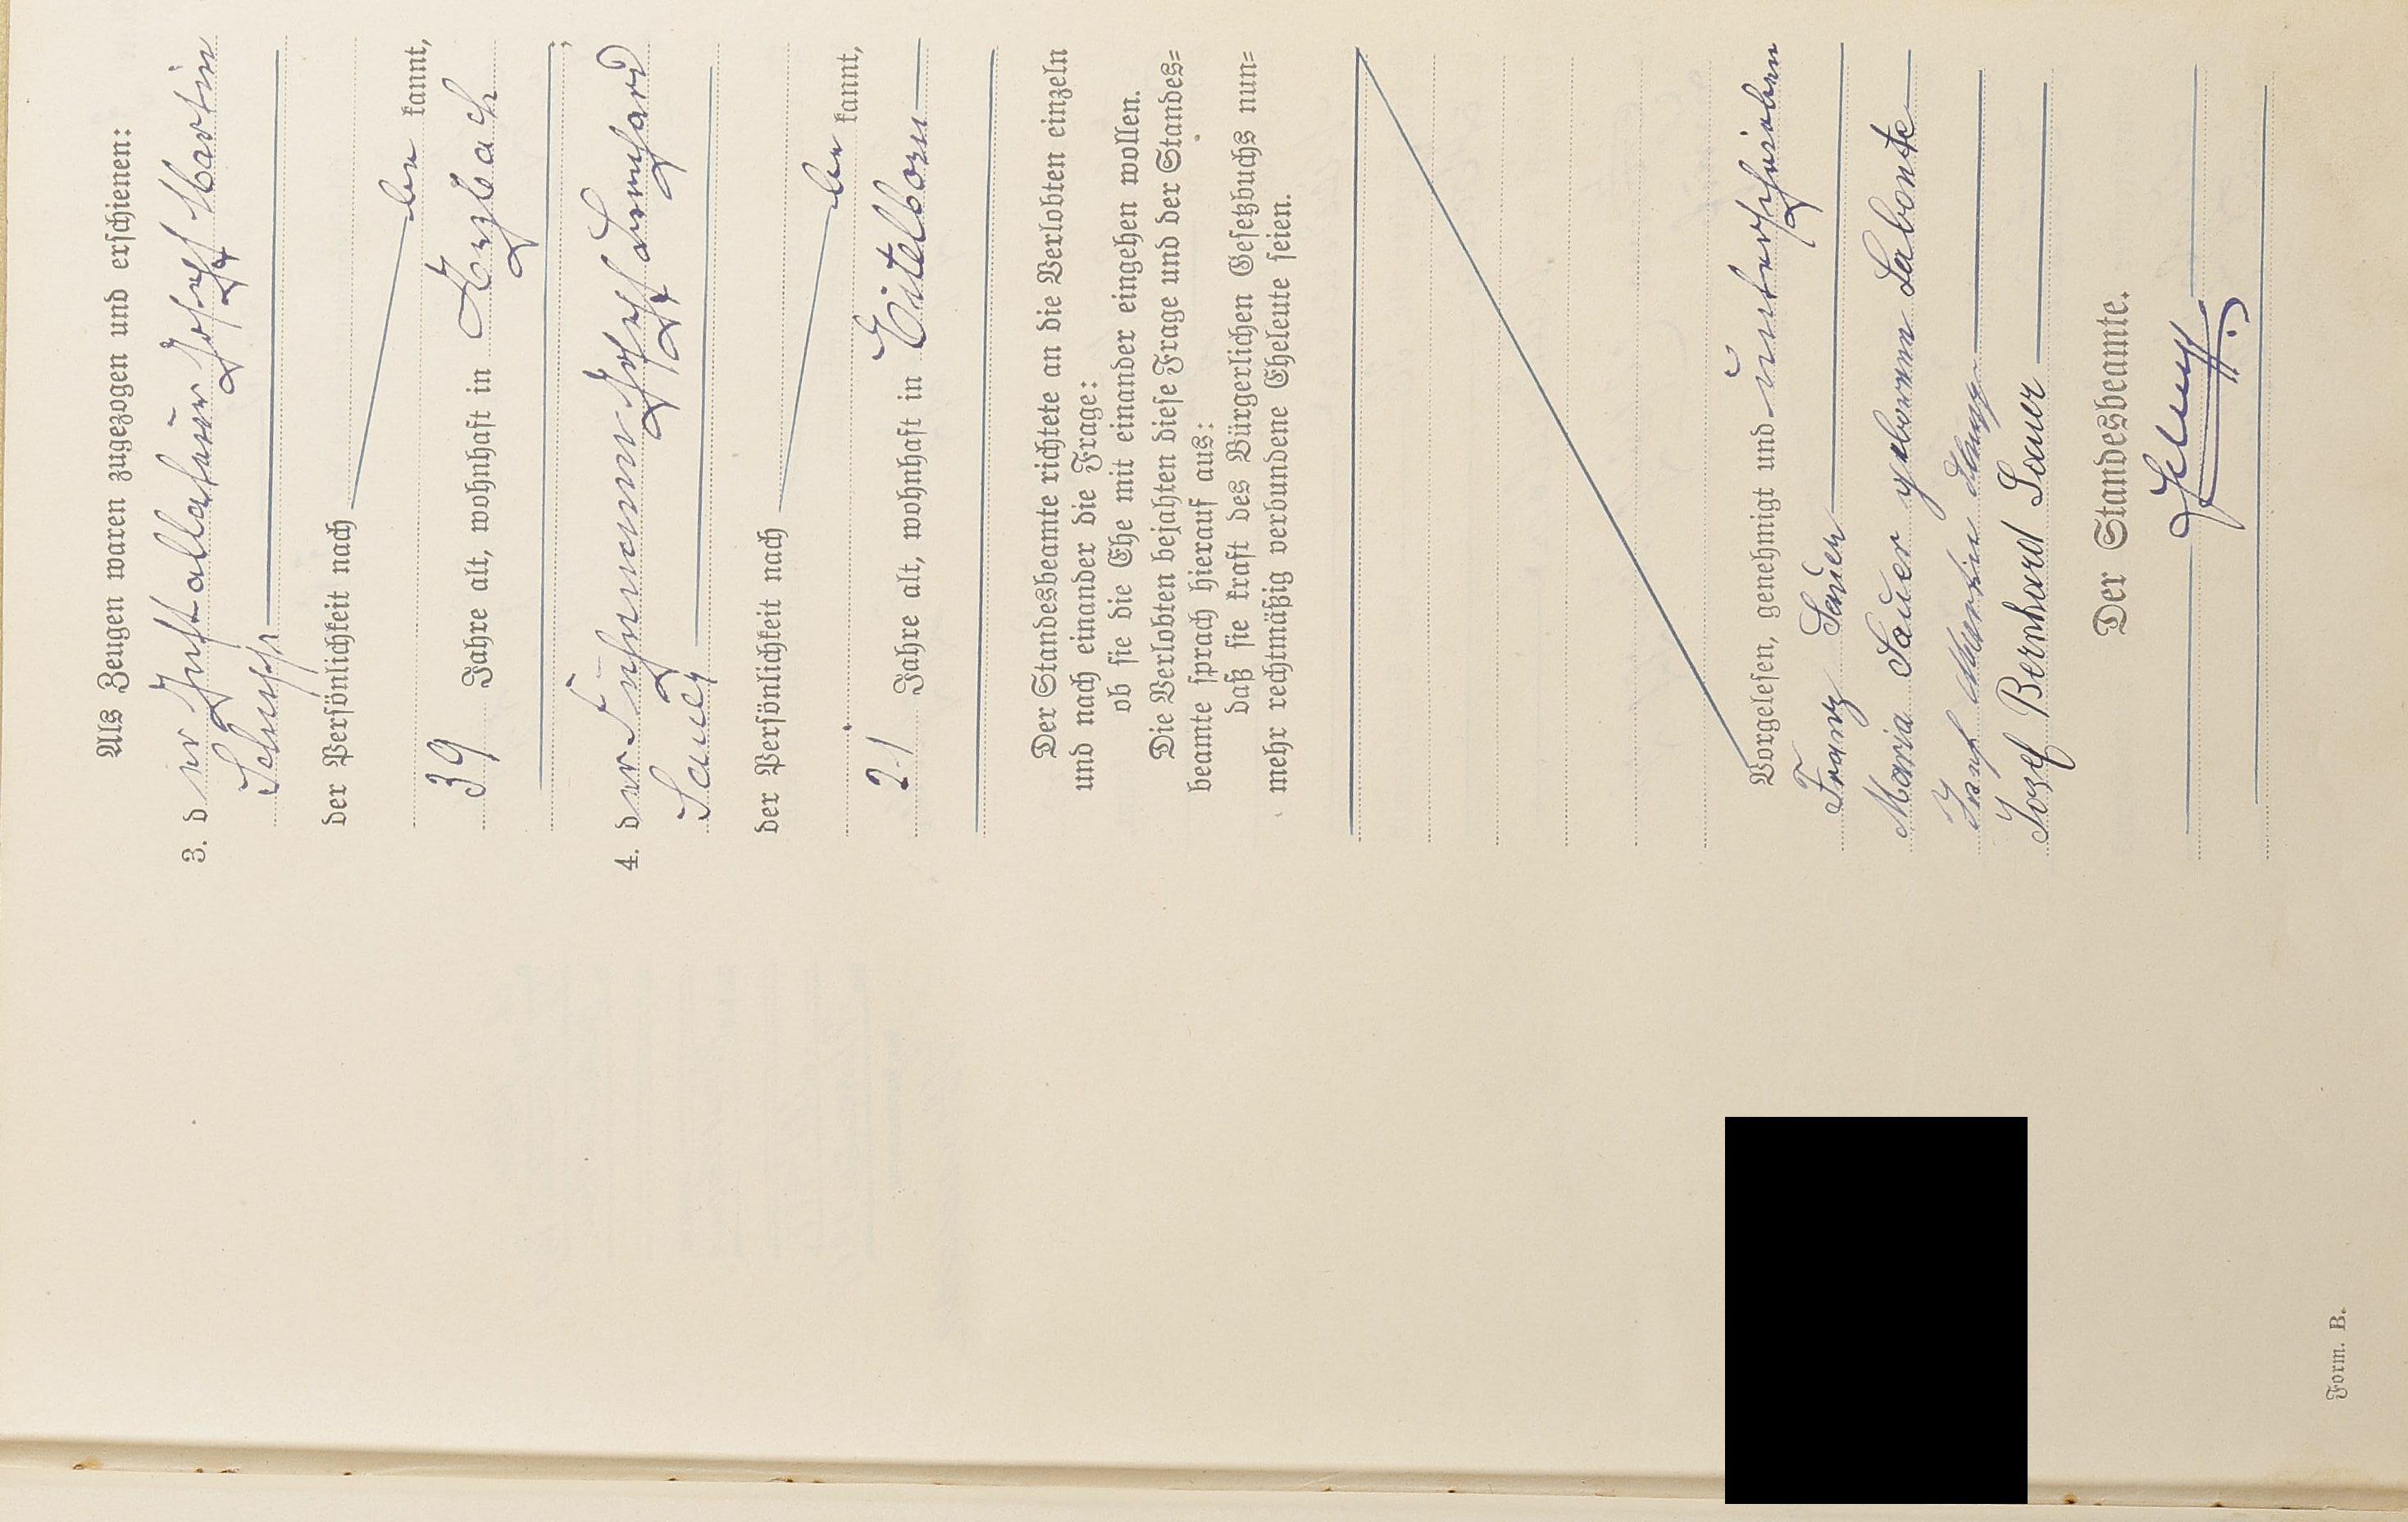 Als Zeugen waren zugezogen und erschienen:
3. der Installateur Josef Martin
Schupp
der Persönlichkeit nach
be kannt,
39 Jahre alt, wohnhaft in Arzbach
;
4. der Fuhrmann Josef Bernhard
Sauer
der Persönlichkeit nach
be kannt,
21 Jahre alt, wohnhaft in Eitelborn
Der Standesbeamte richtete an die Verlobten einzeln
und nach einander die Frage:
ob sie die Ehe mit einander eingehen wollen.
Die Verlobten bejahten diese Frage und der Standes=
beamte sprach hierauf aus:
daß sie kraft des Bürgerlichen Gesetzbuchs nun=
mehr rechtmäßig verbundene Eheleute seien.
Vorgelesen, genehmigt und unterschrieben
Franz Sauer
Maria Sauer geborene Labonte
Josef Martin Schupp
Josef Bernhard Sauer
Der Standesbeamte.
Form. B.